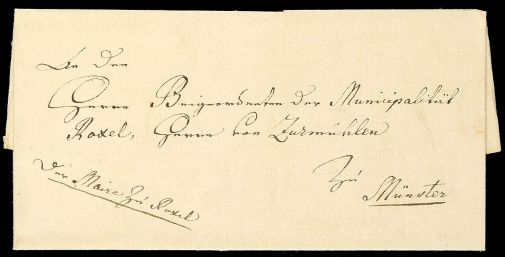 An den
Herrn Beigeordneten der Municipalität
Roxel, Herrn von Zurmühlen
Zu
Münster
Der Maire zu Roxel